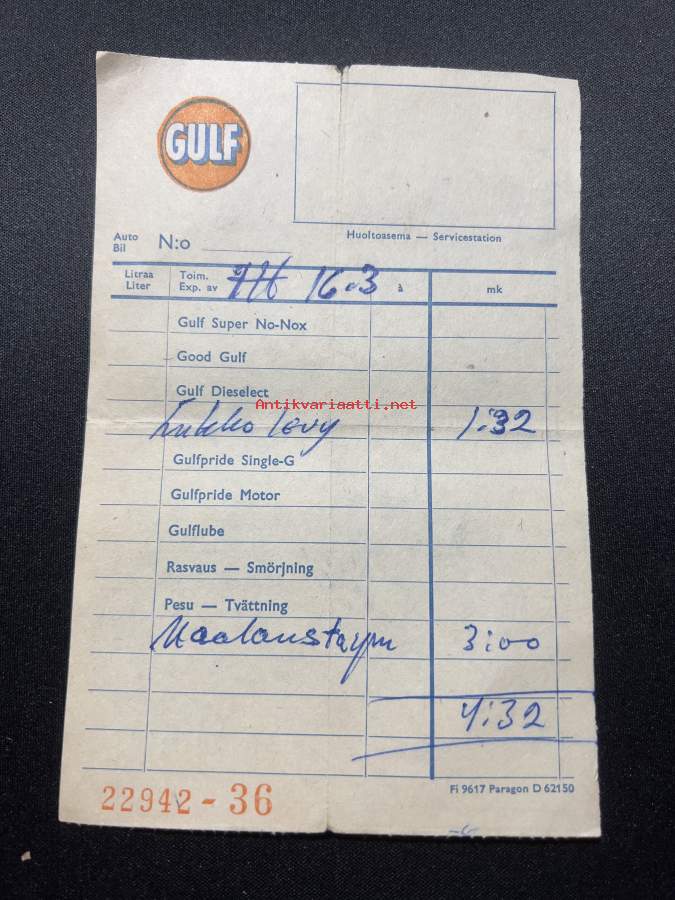 GULF
Auto
Bil
N:o
Huoltoasema — Servicestation
Litraa
Liter
Toim.
Exp. av
16.3
à
mk
Gulf Super No-Nox
Good Gulf
Gulf Dieselect
Antikvariaatti.net
levy 1:32
Gulfpride Single-G
Gulfpride Motor
Gulflube
Rasvaus — Smörjning
Pesu — Tvättning
3:00
4:32
22942 - 36
Fi 9617 Paragon D 62150